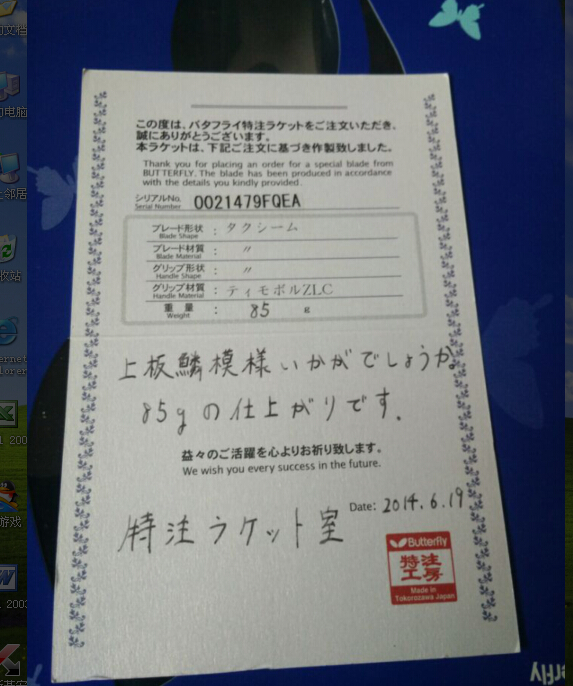 この度は、バタフライ特注ラケットをご注文いただき、
誠にありがとうございます。
本ラケットは、下記ご注文に基づき作製致しました。
Thank you for placing an order for a special blade from
BUTTERFLY. The blade has been produced in accordance
with the details you kindly provided.
シリアルNo.
Serial Number 0021479FQEA
ブレード形状 : タクシーム
Blade Shape
ブレード材質 : 〃
Blade Material
グリップ形状 : 〃
Handle Shape
グリップ材質 : ティモボルZLC
Handle Material
重量 : 85 g
Weight
上板鱗模様いかがでしょうか。
85gの仕上がりです.
益々のご活躍を心よりお祈り致します。
We wish you every success in the future.
Date: 2014.6.19
特注ラケット室
Butterfly
特注
工房
Made in
Tokorozawa-Japan
的文档
的电脑
上邻居
收站
2003
游戏
2003